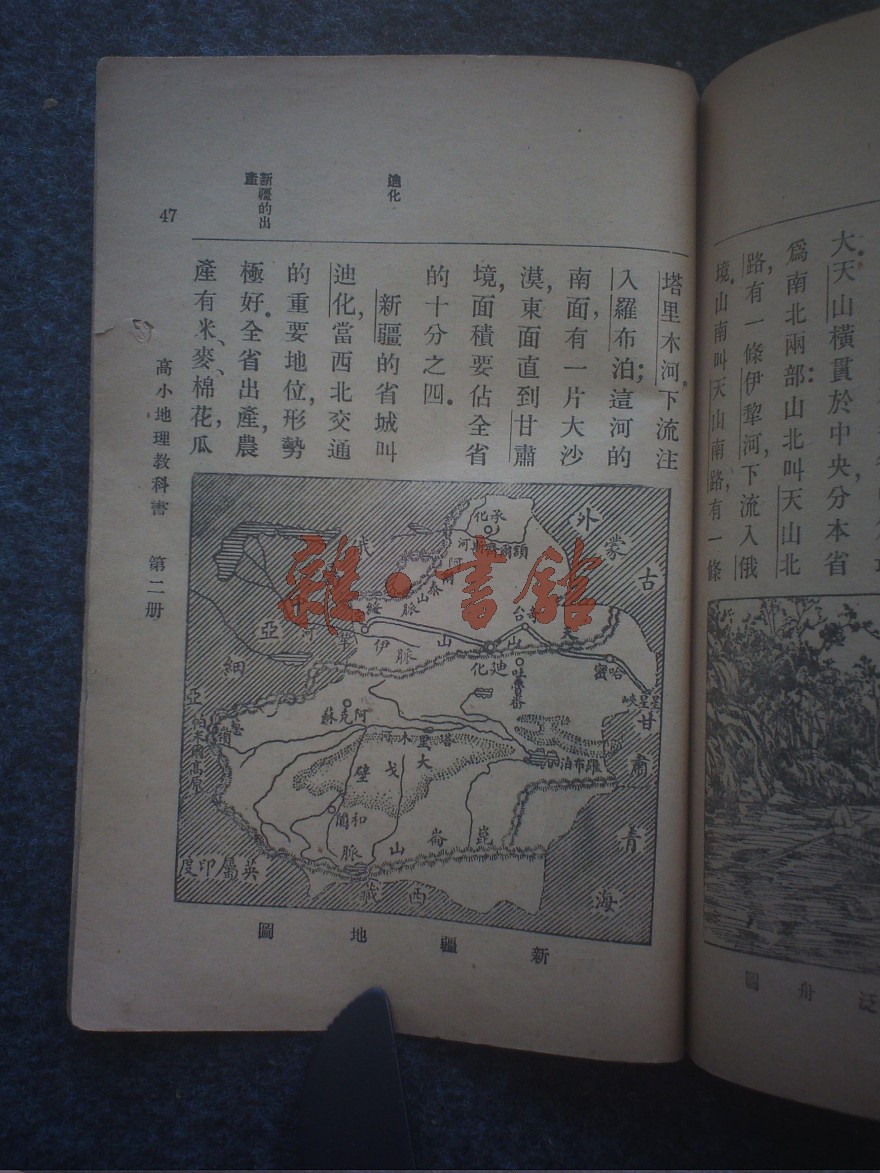 大天山橫貫於中央,分本省
爲南北兩部;山北叫天山北
路,有一條伊犂河,下流入俄
境,山南叫天山南路,有一條
泛舟圖
迪化
新疆的出
產
47
塔里木河,下流注
入羅布泊;這河的
南面,有一片大沙
漠,東面直到甘肅
境,面積要佔全省
的十分之四.
新疆的省城叫
迪化,當西北交通
的重要地位,形勢
極好.全省出產,農
產有米、麥、棉花,瓜
高小地理教科書 第二册
外蒙古
承化
額爾齊斯河
阿爾泰山脈
俄
細亞
亞
伊犂河
綏
天山山脈
迪化
台
吐魯番
哈密
星星峽
甘肅
青海
西藏
英屬印度
帕米爾高原
葱嶺
阿克蘇
塔里木河
大戈壁
羅布泊
和闐
崑崙山脈
新疆地圖
雜·書館